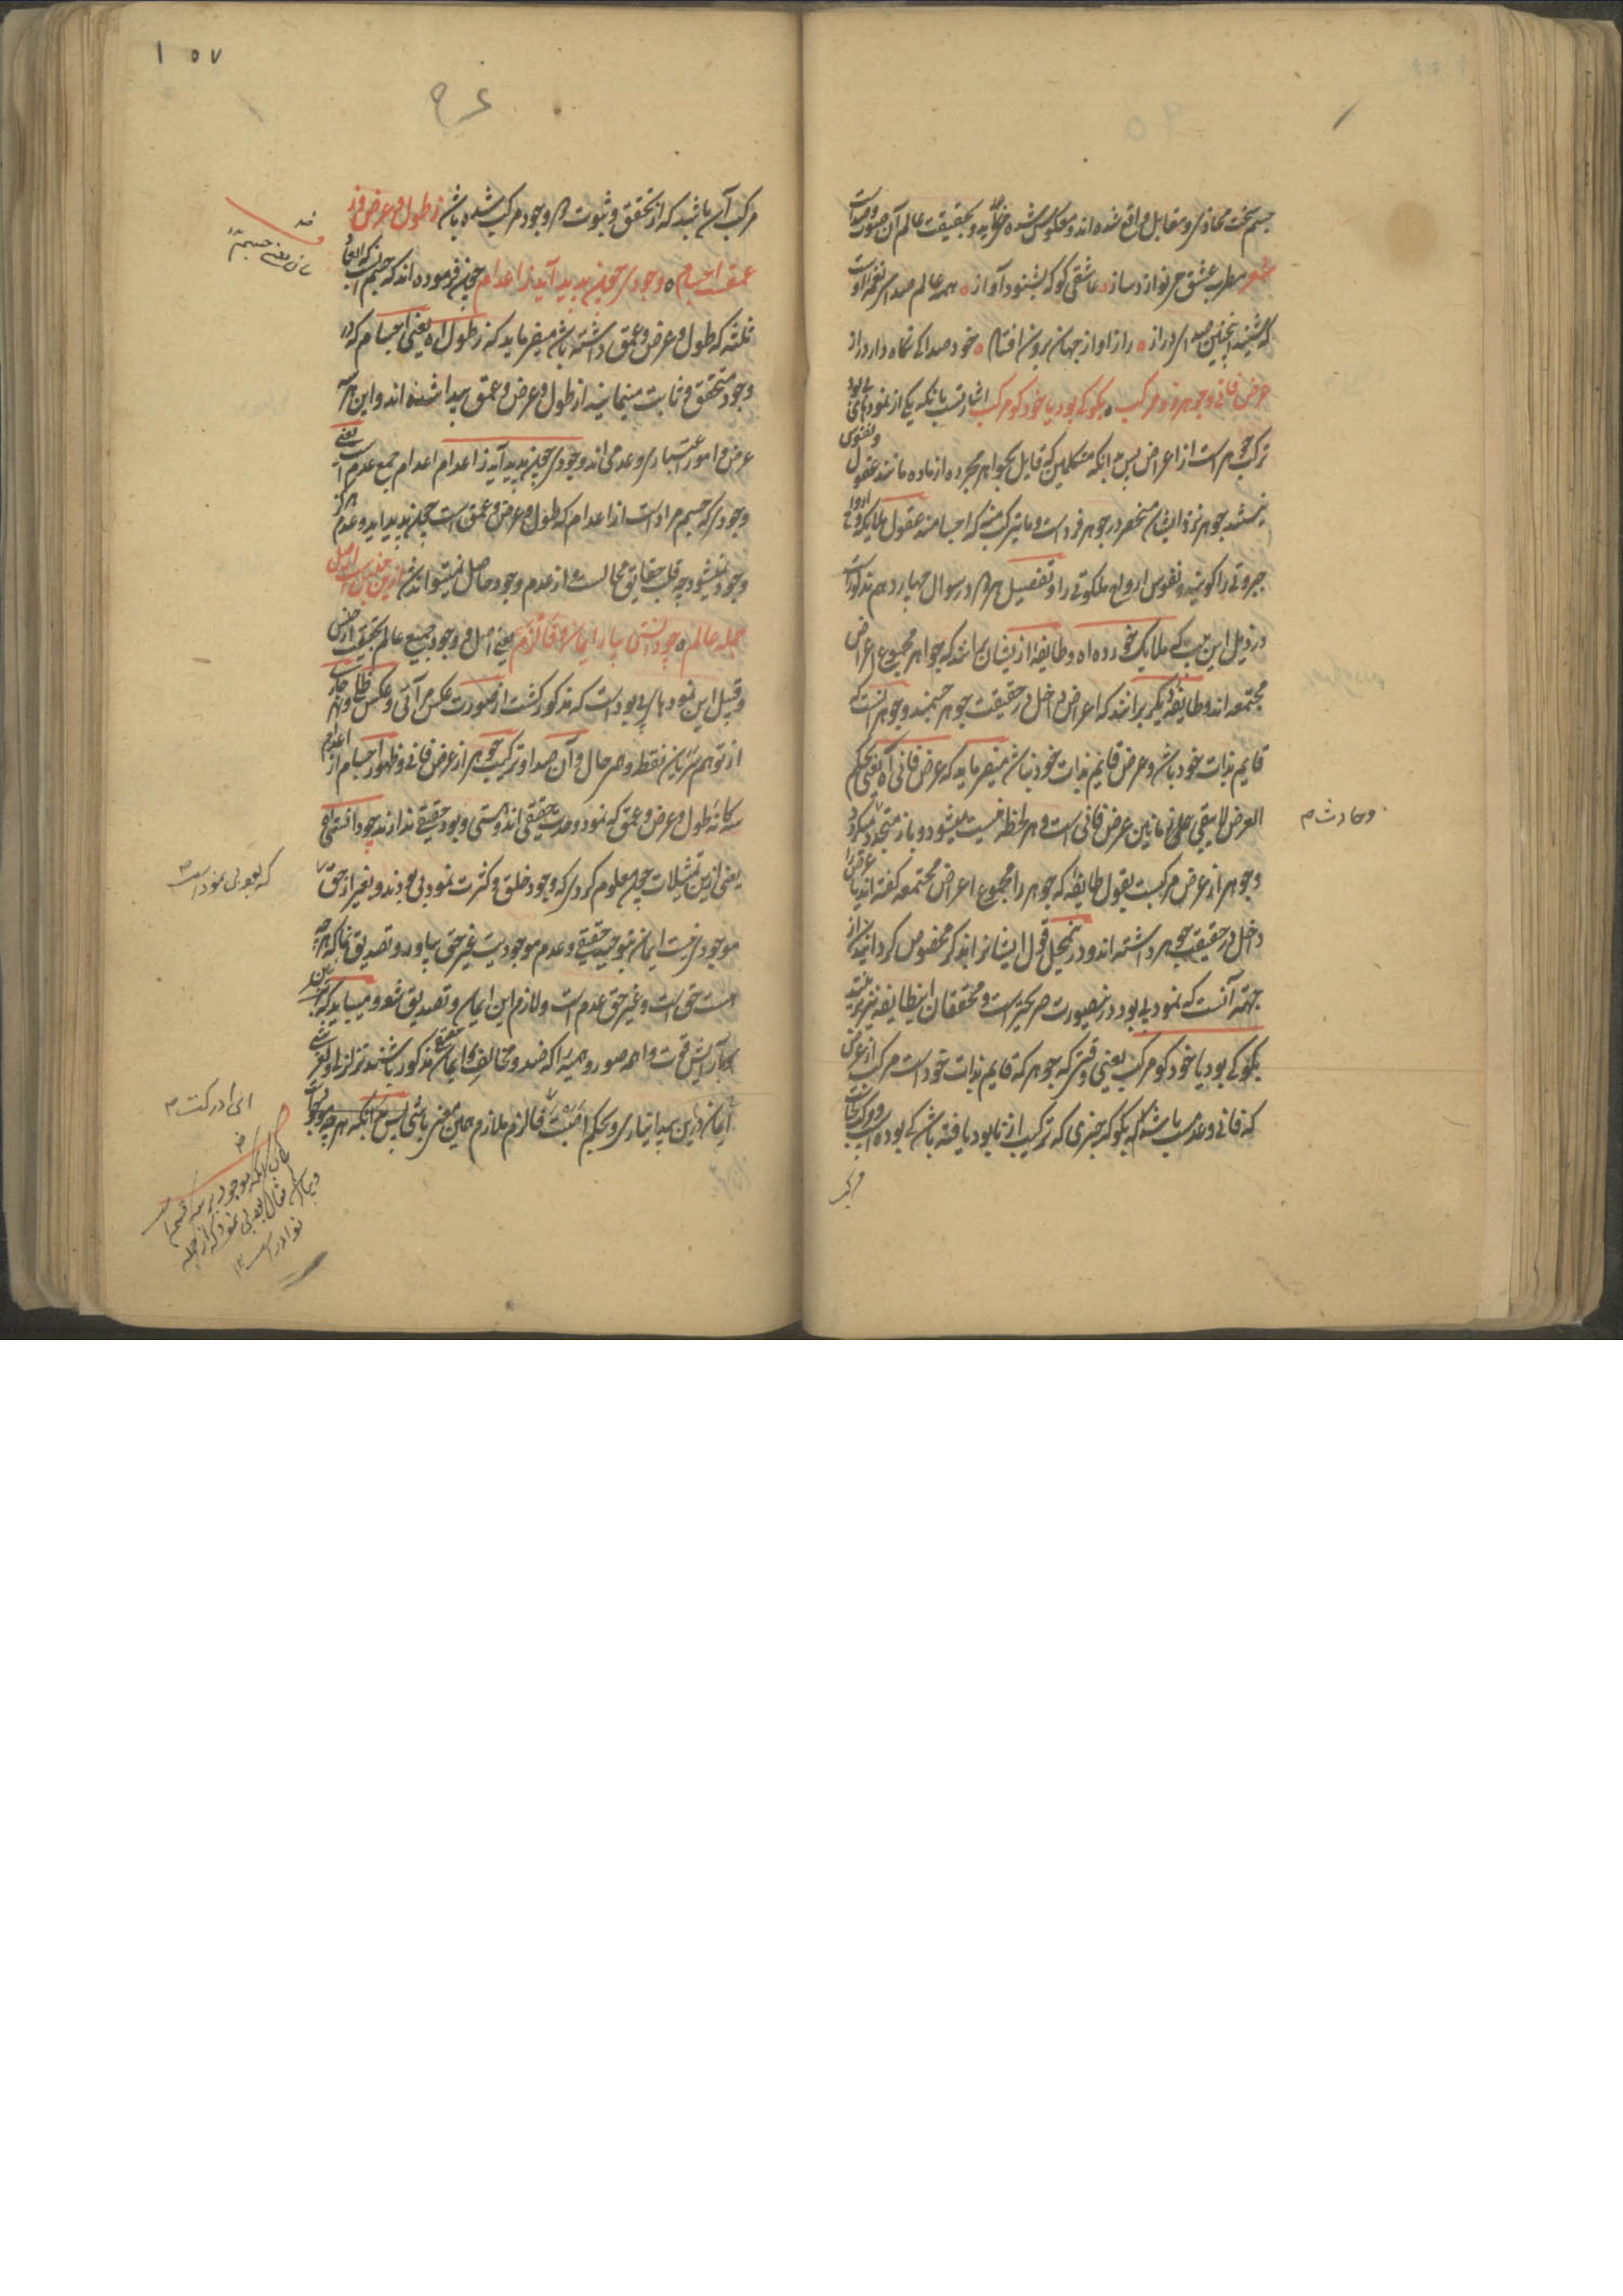 جسم سخت محاذی و مقابل واقع شده اند و معکوس شده می‌آید و بحقیقت عالم آن صورت و صداست
شعر مطرب عشق می نوازد ساز ٥ عاشقی کو که بشنود آواز ٥ همه عالم صدای نغمه اوست
که شنید اینچنین صدای دراز ٥ راز او از جهان برون افتاد ٥ خود صدا کی نگاه دارد راز
عرض فانی و جوهر زو مرکب ٥ بگو کی بود یا خود کو مرکب اشارتست بانکه یکی از نمودهای بی بود
ترکب جوهر است از اعراض پس بدانکه متکلمین که قایل بجواهر مجرده از ماده مانند عقول و نفوس
نیستند جوهر نزد ایشان منحصر در جوهر فرد است و ما یترکب منه که اجسامند عقول ملایکه و ارواح
جبروتی را گویند و نفوس ارواح ملکوتی را و تفصیل هر در سوال چهاردهم مذکور است
در ذیل این بیت که ملایک خورده اه و طایفه از یشان برانند که جواهر مجموع اعراض
مجتمعه اند و طایفه دیگر برانند که اعراض داخل در حقیقت جوهر جسمند و جوهر آنست که
قایم بذات خود باشد و عرض قایم بذات خود نباشد میفرماید که عرض فانی اه یعنی بحکم
العرض لا یبقی علی زمانین عرض فانی است و هر لحظه نیست میشود و باز متجدد میگردد
و جوهر از عرض مرکبست بقول طایفه که جوهر را مجموع اعراض مجتمعه گفته اند یا عرض را
داخل در حقیقت جوهر داشته اند و در محل قول ایشانرا بذکر مخصوص گردانیدن از
جهة آنست که نمود بی بود در نصورت صریحتر است و محققان این طایفه نیز برینند
بگو کی بود یا خود کو مرکب یعنی وقتی که جوهر که قایم بذات خود است مرکب از عرض
که فانی و عدمیست باشد بگو که چیزی که ترکیب از نابود یافته باشد کی بوده است و کو کجاست
مرکب
و حادث م
۱۵۷
مرکب آن باشد که از تحقق و ثبوت و وجود مرکب شده باشد ز طول و عرض و ز
عمقست اجسام ٥ وجودی چون پدید آید ز اعدام چون فرموده اند که جسم آنست که ابعاد
ثلثه که طول و عرض و عمق داشته باشد میفرماید که ز طول اه یعنی اجسام که در
وجود متحقق و ثابت مینمایند از طول و عرض و عمق پیدا شده اند و این هر سه
عرض و امور اعتباری و عدمی اند وجودی چون پدید آید ز اعدام اعدام جمع عدم است یعنی
وجودی که جسم مراد است از اعدام که طول و عرض و عمق است چون پدید آید و عدم هرگز
وجود نمیشود چه قلب حقایق محالست و از عدم وجود حاصل نمیتواند شد ازین جنس است اصل
جمله عالم ٥ چو دانستی بیار ایمان و فالزم یعنی اصل و وجود جمیع عالم بحقیقت از جنس
و قبیل این نمودهای بی بود است که مذکور گشت از صورت عکس مرآتی و عکس ظل و نهر جاری
از توهم سریان نقطه و مر حال و آن صدا و ترکیب جوهر از عرض فانی و ظهور اجسام از اعدام
سه گانه طول و عرض و عمق که نمود وحدت حقیقی اند و هستی و بود حقیقی ندارند چو دانستی اه
یعنی ازین تمثیلات چون معلوم کردی که وجود خلق و کثرت نمود بی بودند و بغیر از حق
موجودی نیست ایمان بتوحید حقیقی و عدم موجودیت غیر حق بیاور و تصدیق نما که هر چه
هست حق است و غیر حق عدم است و لازم این ایمان و تصدیق شو و میباید که
آرایش قوت واهمه صور وهمیه را که ضد و مخالف ایمان حقیقی مذکور باشند تزلزل و لغزشی
ایمان درین پیدا نیاری و بحکم اثبت فالزم ملازم همین معنی باشی پس بدانکه هر چه موجود است
که بود بی نمود است
ای ادرکت م